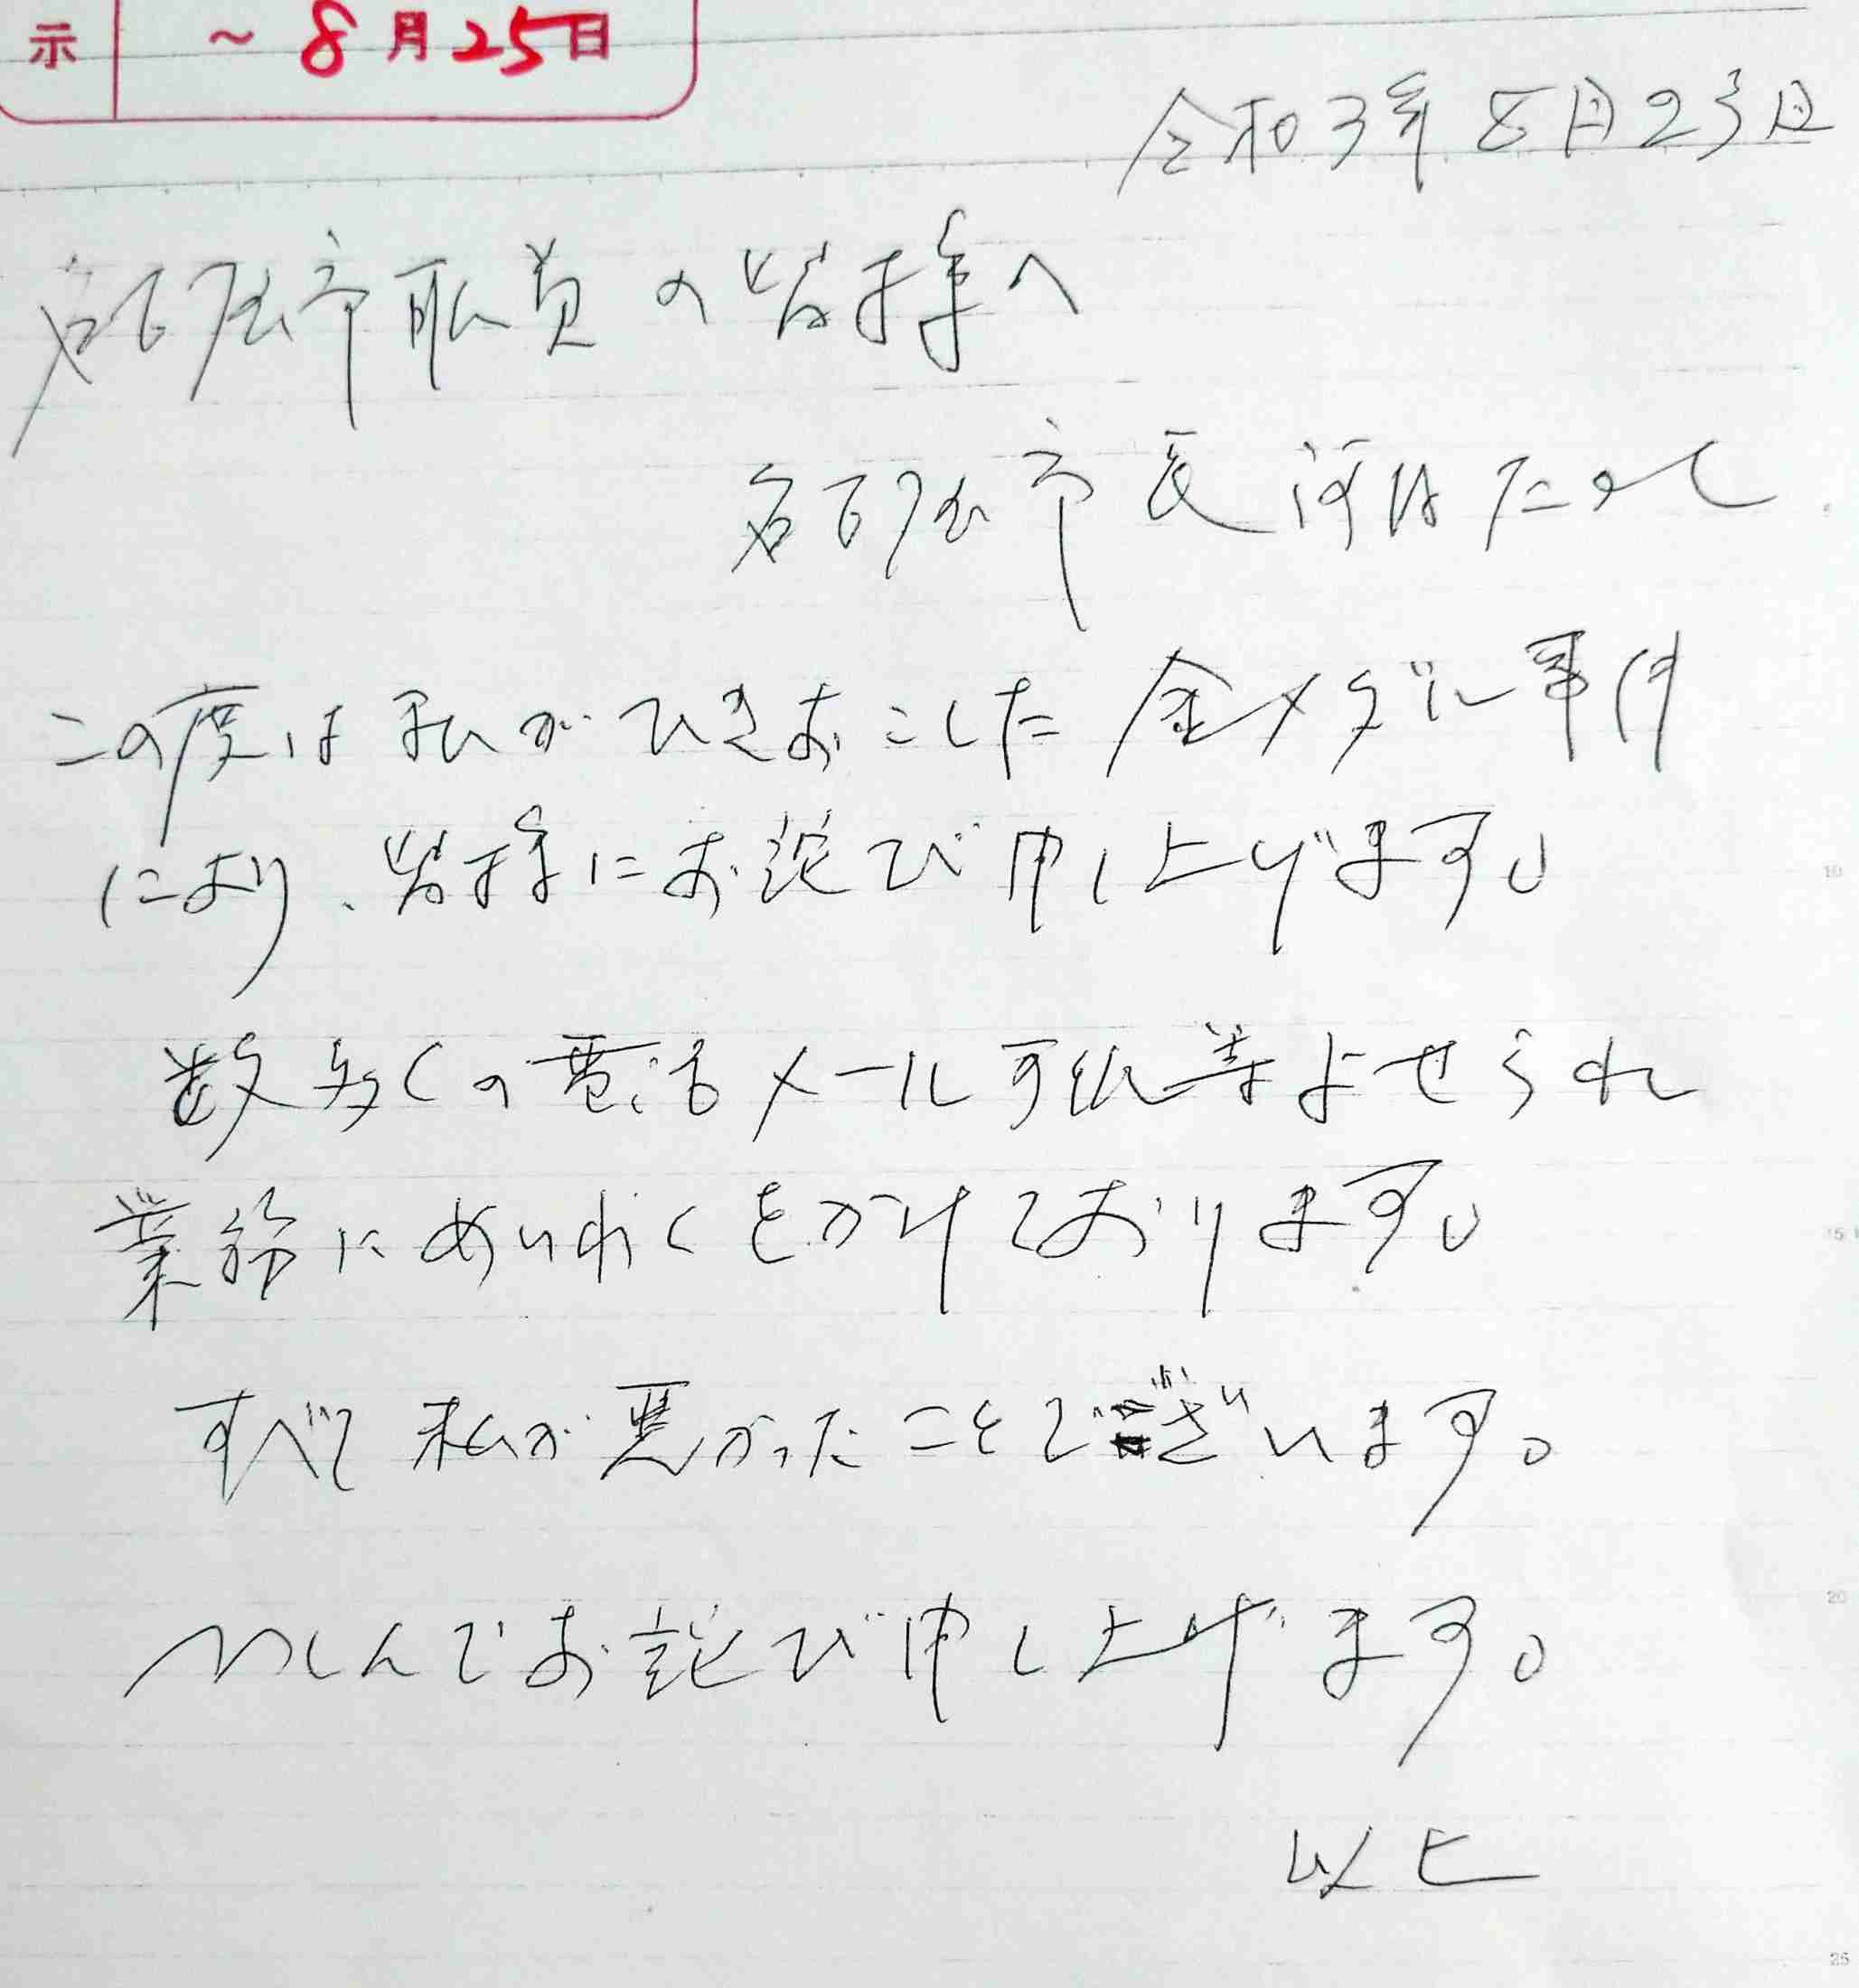 示 ～8月25日
令和3年8月23日
名古屋市職員の皆様へ
名古屋市長 河村たかし
この度は私がひきおこした金メダル事件
により、皆様にお詫び申し上げます。
数多くの電話メール手紙等よせられ
業務にめいわくをかけております。
すべて私が悪かったことでございます。
つつしんでお詫び申し上げます。
以上
10
15
20
25